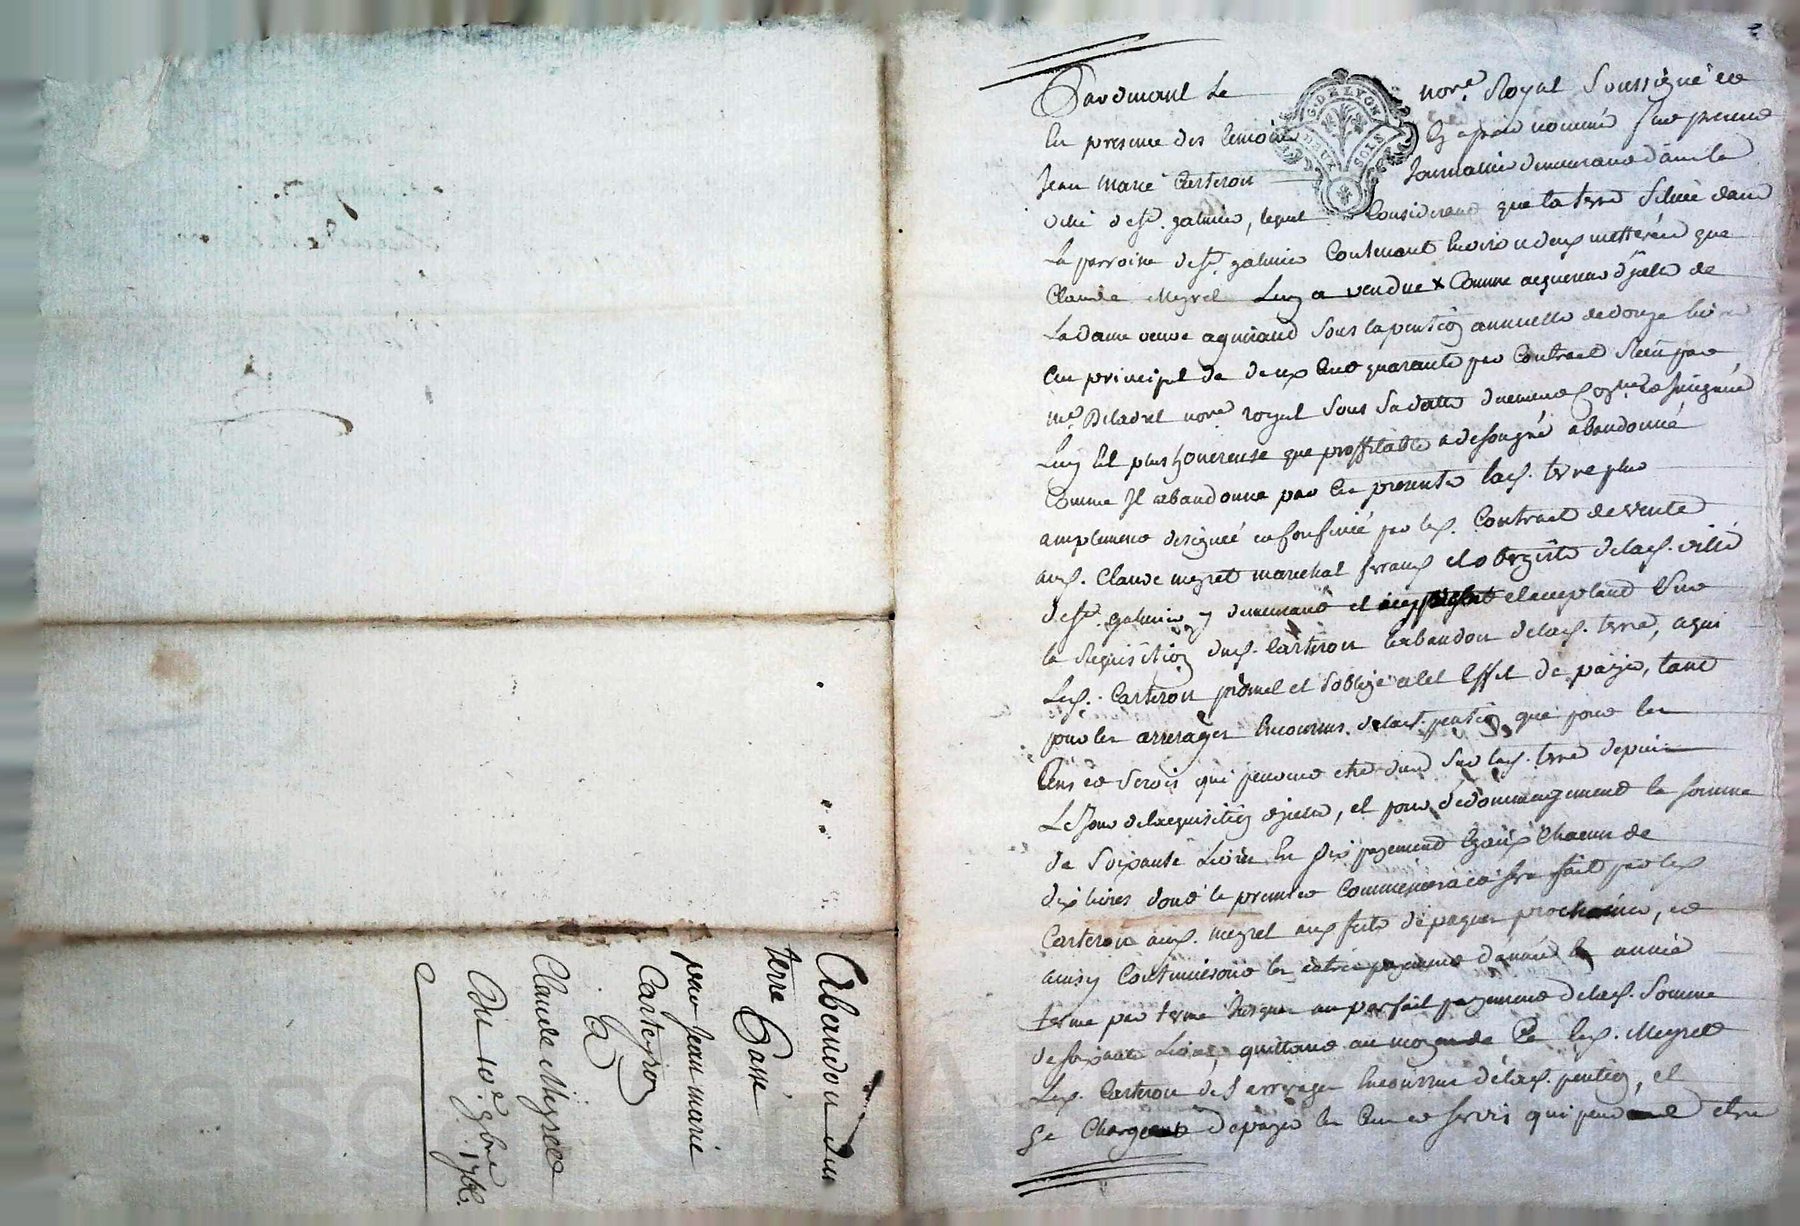 Abandon d'un
terre Passé
par Jean marie
Carteron
a
Claude Meyret
Du 10e 9bre 176
G. DE LYON
DEUX SOLS
Pardevant Le nore Royal Soussigné et
En presence des temoins En apres nommés fut present
Jean Marie Carteron Journalier demeurant dans la
ville de St. galmier, lequel Considerant que la terre Située dans
La parroisse de St. galmier Contenant Environ deux metterées que
Claude Meyret Luy a vendue x Comme acquereur d'icelle de
La dame veuve aguiraud Sous la pention annuelle de douze livres
Au principal de deux Cent quarante par Contract Reçu par
Me. Deladret nore royal Sous Sa datte duement
Luy Est plus honereuse que proffitable a de son gré abandonné
Comme Il abandonne par Ces presentes lad. terre plus
amplement designée et Confinée par led. Contract de vente
aud. Claude meyret marechal ferrant et de lad. ville
de St. galmier y demeurant et acceptant Sur
la Requisition dud. Carteron l'abandon de lad. terre, a qui
Led. Carteron promet et S'oblige a cet Effet de payer, tant
pour les arrerages Encourrus de lad. pention que pour les
Cens et Servis qui peuvent etre dus Sur lad. terre depuis
Le Jour de l'acquisition d'icelle, et pour dedommagement la somme
de Soixante Livres En Six payement Egaux Chacun de
dix livres dont le premier Commencera et sera fait par led.
Carteron aud. meyret aux fetes de paques prochaines, et
ainsy Continueront les autres payements d'année En année
terme par terme Jusques au parfait payement de lad. Somme
de soixante Livres, quittant au moyen de Ce led. Meyret
Led. Carteron des arrerages Encourrus de lad. pention, et
Se Chargeant de payer les Cens et servis qui peuvent etre